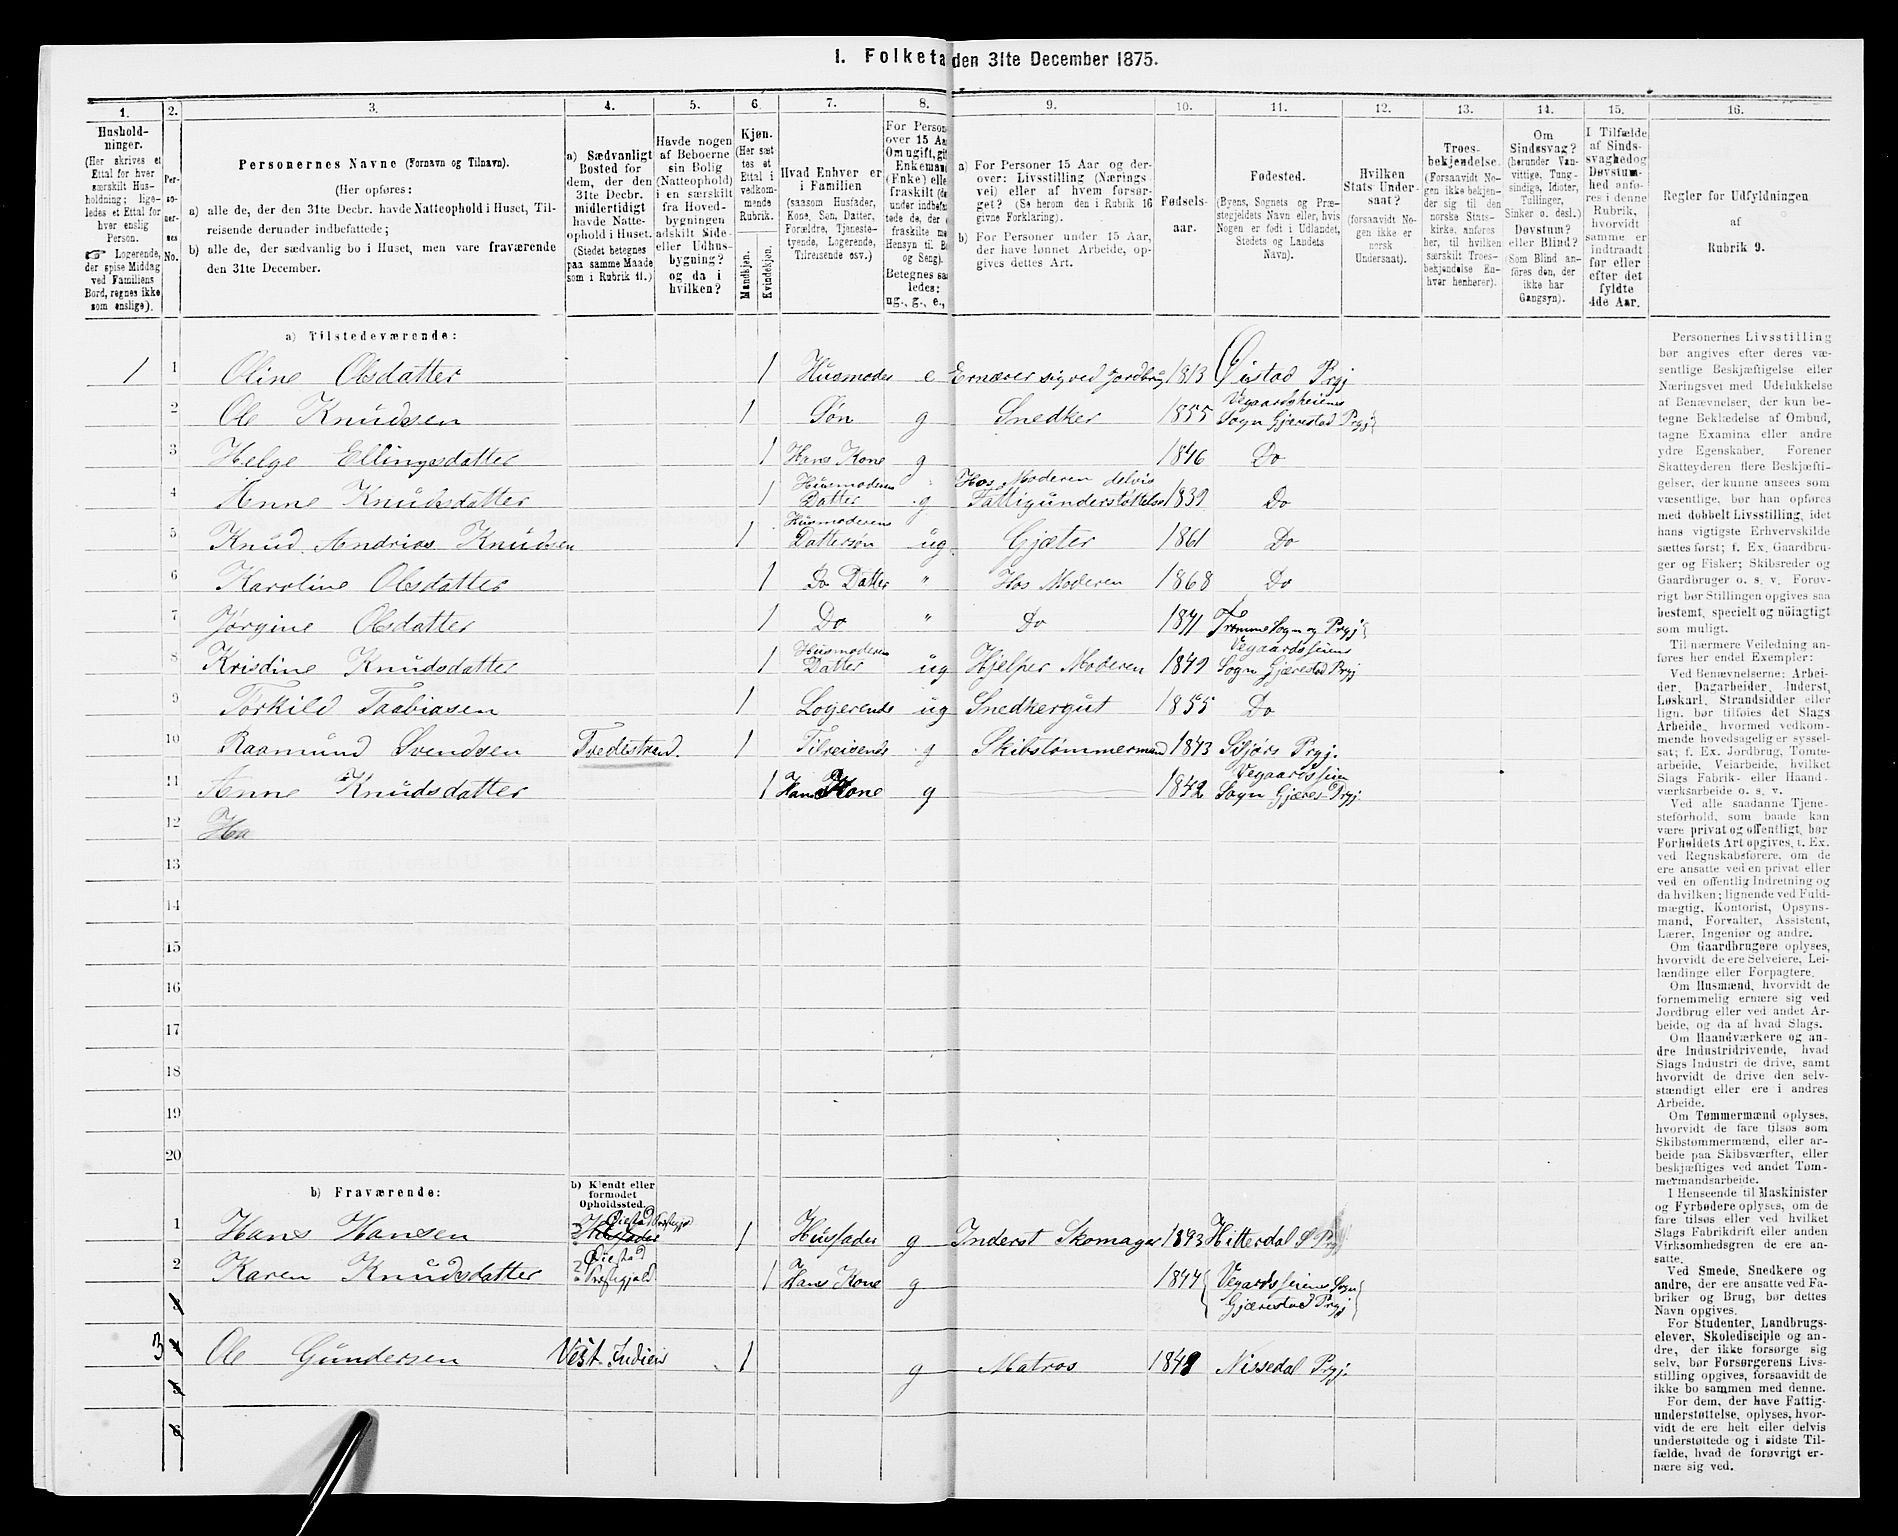 I. Folketa den 31te December 1875.
1. 2. 3. 4. 5. 6. 7. 8. 9. 10. 11. 12. 13. 14. 15. 16.
Hushold-
ninger.
(Her skrives et
Ettal for hver
særskilt Hus-
holdning; lige-
ledes et Ettal for
hver enslig
Person.
☞ Logerende,
der spise Middag
ved Familiens
Bord, regnes ikke
som enslige).
Per-
so-
ner-
nes
No.
Personernes Navne (Fornavn og Tilnavn).
(Her opføres:
a) alle de, der den 31te Decbr. havde Natteophold i Huset, Til-
reisende derunder indbefattede;
b) alle de, der sædvanlig bo i Huset, men vare fraværende
den 31te December.
a) Sædvanligt
Bosted for
dem, der den
31te Decbr.
midlertidigt
havde Natte-
ophold i Huset.
(Stedet betegnes
paa samme Maade
som i Rubrik 11.)
Havde nogen
af Beboerne
sin Bolig
(Natteophold)
i en særskilt
fra Hoved-
bygningen
adskilt Side-
eller Udhus-
bygning?
og da i
hvilken?
Kjøn.
(Her sæt-
tes et
Ettal i
vedkom-
mende
Rubrik.
Mandkjøn.
Kvindekjøn.
Hvad Enhver er
i Familien
(saasom Husfader,
Kone, Søn, Datter,
Forældre, Tjeneste-
tyende, Logerende,
Tilreisende osv.)
For Person
over 15 Aa
Om ugift, gif
Enkemand
(Enke) elle
fraskilt (de
under indbefat-
tede de, der e
fraskilte me
Hensyn til Bo
og Seng).
Betegnes saa-
ledes:
ug., g., e.,
a) For Personer 15 Aar og der-
over: Livsstilling (Nærings-
vei) eller af hvem forsør-
get? (Se herom den i Rubrik 16
givne Forklaring).
b) For Personer under 15 Aar,
der have lønnet Arbeide, op-
gives dettes Art.
Fødsels-
aar.
Fødested.
(Byens, Sognets og Præ-
stegjeldets Navn eller, hvis
Nogen er født i Udlandet,
Stedets og Landets
Navn).
Hvilken
Stats Under-
saat?
(forsaavidt No-
gen ikke er
norsk
Undersaat).
Troes-
bekjendelse.
(Forsaavidt No-
gen ikke bekjen-
der sig til den
norske Stats-
kirke, anføres
her, til hvilken
særskilt Troes-
bekjendelse En-
hver henhører).
Om
Sindssvag?
(herunder Van-
vittige, Tung-
sindige, Idioter,
Sinker o. desl.)
Døvstum?
eller Blind?
(Som Blind an-
føres den, der
ikke har
Gangsyn).
I Tilfælde
af Sinds-
svaghed og
Døvstum-
hed anfø-
res i denne
Rubrik,
hvorvidt
samme er
indtraadt
før eller
efter det
fyldte
4de Aar.
Regler for Udfyldningen
af
Rubrik 9.
a) Tilstedeværende:
1 1 Oline Olsdatter 1 Husmoder e Ernærer sig ved Jordbrug 1813 Øiestad Prgj
2 Ole Knudsen 1 Søn g Snedker 1855 Vegaardsheiens Sogn Gjerestad Prgj
3 Helge Ellingsdatter 1 Hans Kone g 1846 Do
4 Anne Knudsdatter 1 Husmoderens Datter g Hos Moderen delvis Fattigunderstøttelse 1839 Do
5 Knud Andrias Knudsen 1 Husmoderens Dattersøn ug Gjæter 1861 Do
6 Karoline Olsdatter 1 Do Datter " Hos Moderen 1868 Do
7 Jørgine Olsdatter 1 Do " Do 1871 Tromme Sogn og Prgj
8 Krisdine Knudsdatter 1 Husmoderens Datter ug Hjelper Moderen 1849 Vegaardsheiens Sogn Gjærestad Prgj
9 Torkild Taabiasen 1 Logerende ug Snedkergut 1855 Do
10 Raamund Svendsen Tvedestrand. 1 Tilreisende g Skibstømmermand 1843 Prgj.
11 Anne Knudsdatter 1 Hans Kone g 1842 Vegaardsheien Sogn Gjæres Prgj.
12 Ha
13
14
15
16
17
18
19
20
b) Fraværende:
b) Kjendt eller
formodet
Opholdssted.
1 Hans Hansen Øiestad Præstegj 1 Husfader g Inderst Skomager 1843 Hitterdal Prgj
2 Karen Knudsdatter Øiestad Præstegjeld 1 Hans Kone g 1844 Vegardsheiens Sogn Gjærestad Prgj
3
3 4 Ole Gundersen Vest Indien 1 g Matros 1848 Nissedal Prgj.
5
6
Personernes Livsstilling
bør angives efter deres væ-
sentlige Beskjæftigelse eller
Næringsvei med Udelukkelse
af Benævnelser, der kun be-
tegne Beklædelse af Ombud,
tagne Examina eller andre
ydre Egenskaber. Forener
Skatteyderen flere Beskjæfti-
gelser, der kunne ansees som
væsentlige, bør han opføres
med dobbelt Livsstilling, idet
hans vigtigste Erhvervskilde
sættes først; f. Ex. Gaardbru-
ger og Fisker; Skibsreder og
Gaardbruger o. s. v. Forøv-
rigt bør Stillingen opgives saa
bestemt, specielt og nøiagtigt
som muligt.
Til nærmere Veiledning an-
føres her endel Exempler:
Ved Benævnelserne: Arbei-
der, Dagarbeider, Inderst,
Løskarl, Strandsidder eller
lign. bør tilføies det Slags
Arbeide, hvormed vedkom-
mende hovedsagelig er syssel-
sat; f. Ex. Jordbrug, Tomte-
arbeide, Veiarbeide, hvilket
Slags Fabrik- eller Haand-
værksarbeide o. s. v.
Ved alle saadanne Tjene-
steforhold, som baade kan
være privat og offentligt, bør
Forholdets Art opgives, t. Ex.
ved Regnskabsførere, om de
ere ansatte ved en privat eller
ved en offentlig Indretning og
da hvilken; lignende ved Fuld-
mægtig, Kontorist, Opsyns-
mand, Forvalter, Assistent,
Lærer, Ingeniør og andre.
Om Gaardbrugere oplyses,
hvorvidt de ere Selveiere, Lei-
lændinge eller Forpagtere.
Om Husmænd, hvorvidt de
fornemmelig ernære sig ved
Jordbrug eller ved andet Ar-
beide, og da af hvad Slags.
Om Haandværkere og an-
dre Industridrivende, hvad
Slags Industri de drive, samt
hvorvidt de drive den selv-
stændigt eller ere i andres
Arbeide.
Om Tømmermænd oplyses,
hvorvidt de fare tilsøs som
Skibstømmermænd, eller ar-
beide paa Skibsværfter, eller
beskjæftiges ved andet Tøm-
mermandsarbeide.
I Henseende til Maskinister
og Fyrbødere oplyses, om de
fare tilsøs eller ved hvilket
Fabrikdrift eller anden
Virksomhedsgren de ere an-
satte.
Ved Smede, Snedkere og
andre, der ere ansatte ved Fa-
briker og Brug, bør dettes
Navn opgives.
For Studenter, Landbrugs-
elever, Skoledisciple og an-
dre, der ikke forsørge sig
selv, bør Forsørgerens Livs-
stilling opgives, forsaavidt de
ikke bo sammen med denne.
For dem, der have Fattig-
understøttelse, oplyses, hvor-
vidt de ere helt eller delvis
understøttede og i sidste Til-
fælde, hvad de forøvrigt er-
nære sig ved.